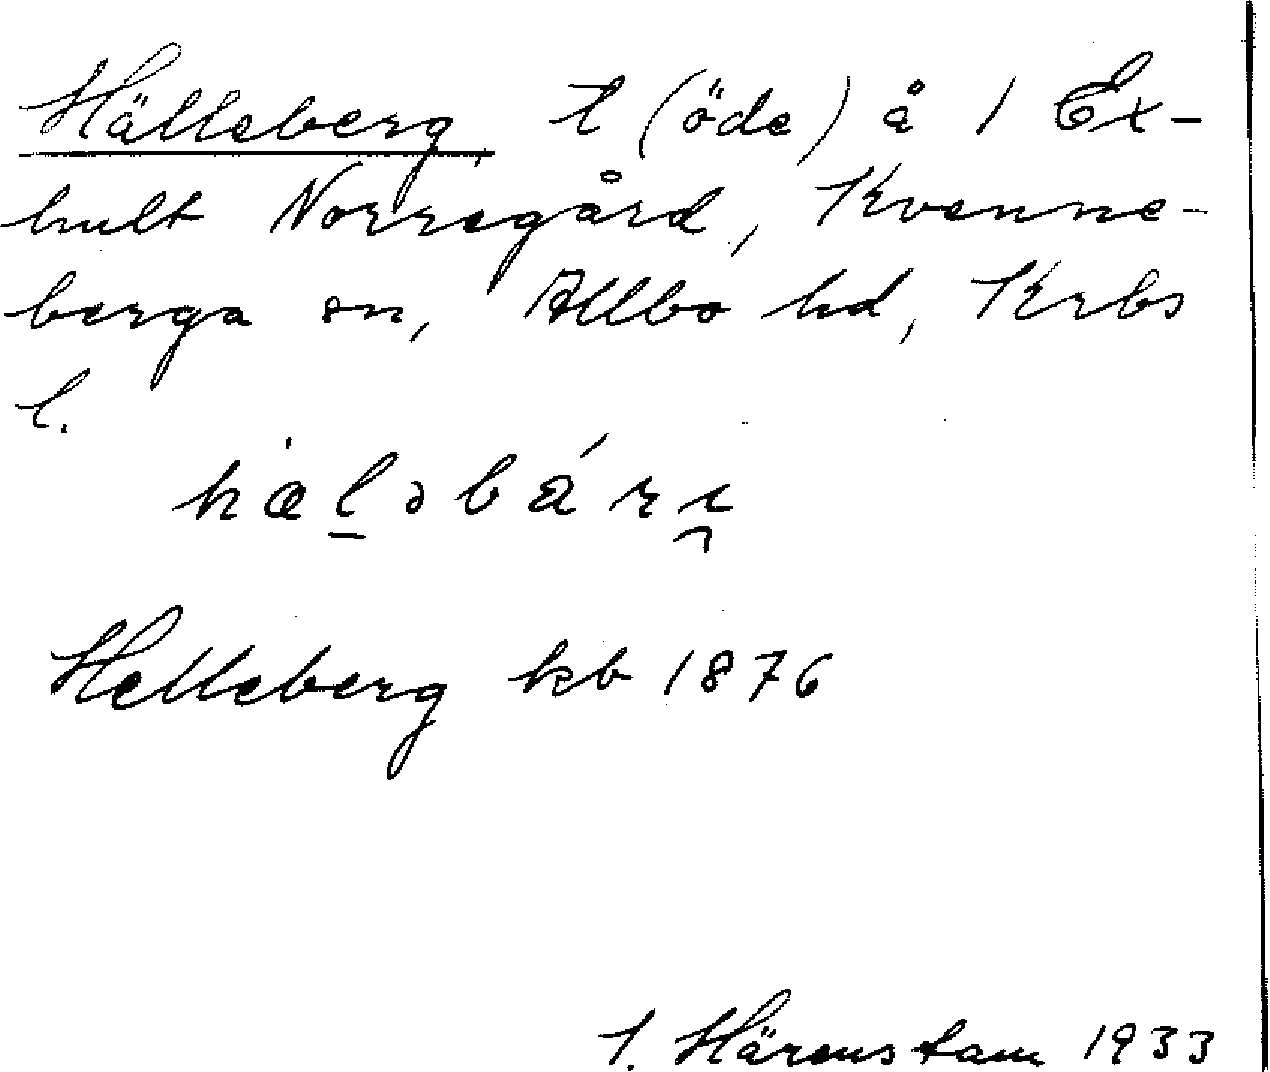 Hälleberg t (öde) å 1 Ex-
hult Norregård, Kvenne-
berga sn, Allbo hd, Krbs
l.
hæləbári
Helleberg kb 1876
I. Härenstam 1933